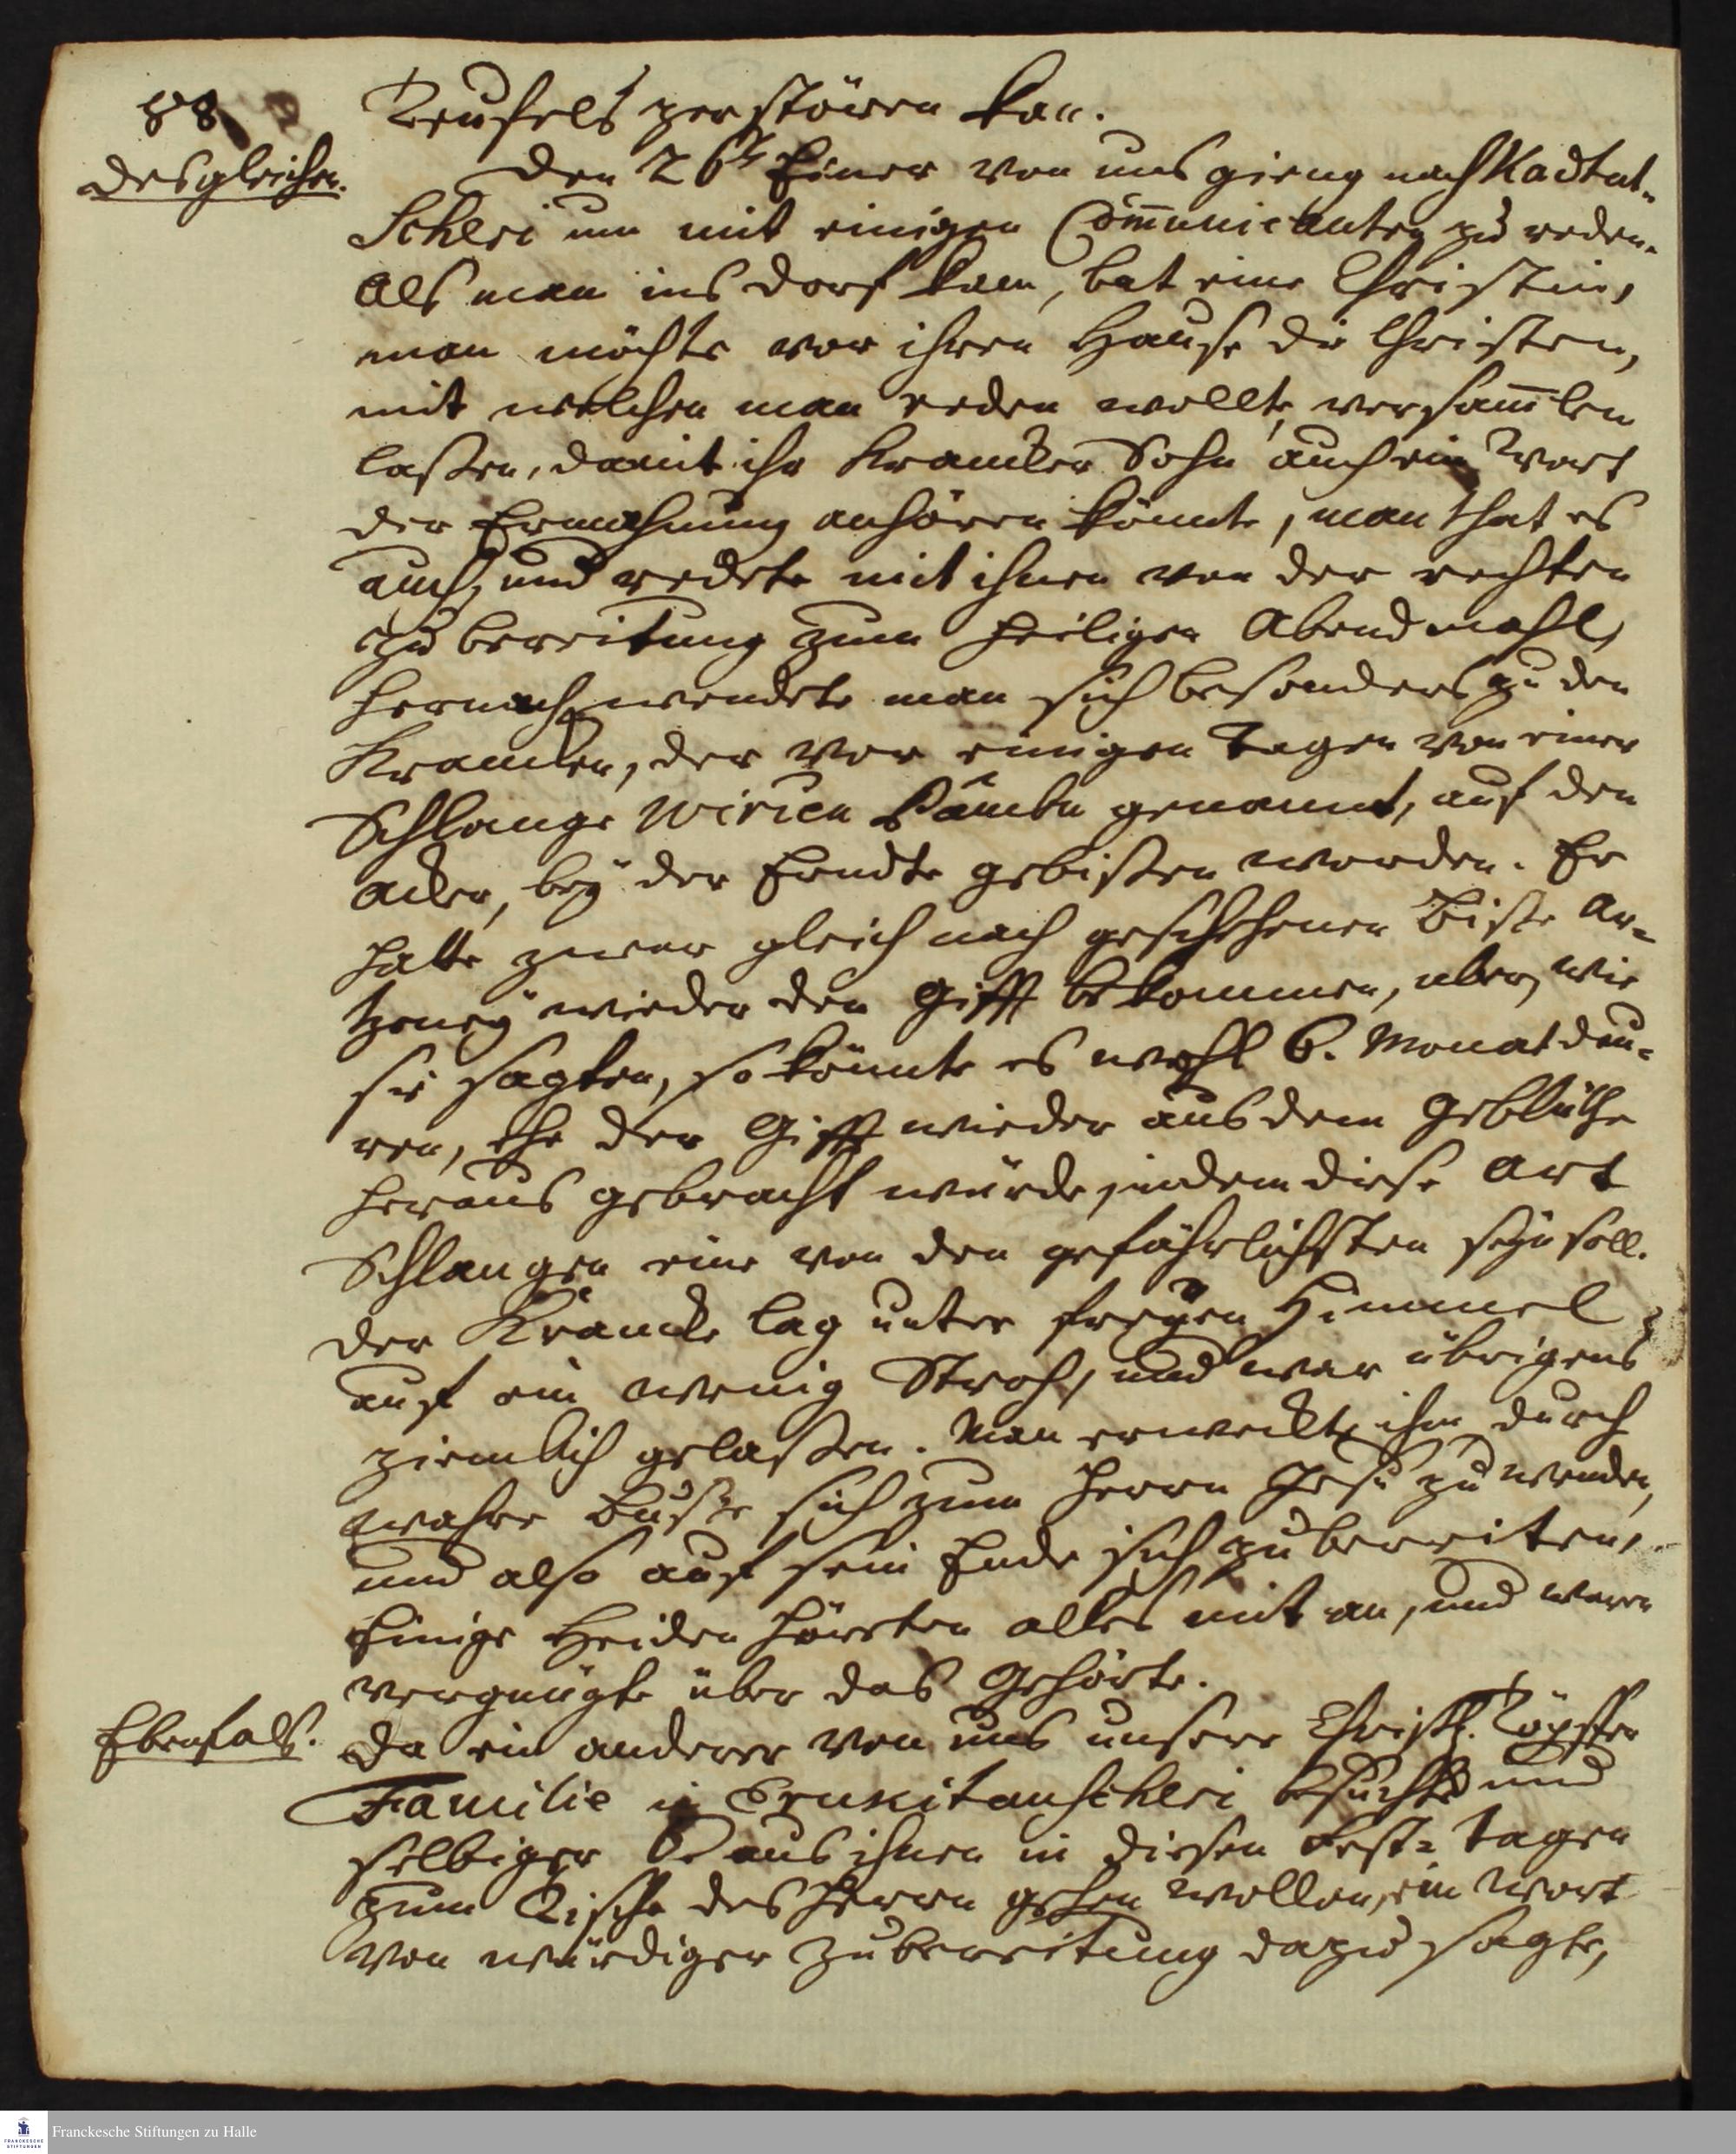 88
Teufels zerstören kan.
desgleichen.
den 26ten Einer von uns gieng nach Kadtut-
Scheri um mit einigen Com̅unicanten zu reden.
Als man ins dorf kam, bat eine Christin,
man möchte vor ihren Hause die Christen,
mit welchen man reden wollte, versam̅len
laßen, damit ihr Krancker Sohn auch ein Wort
der Ermahnung anhören könnte, man that es
auch, und redete mit ihnen von der rechten
zubereitung zum heiligen Abendmahl,
hernach wendete man sich besonders zu den
Krancken, der vor einigen Tagen von einer
Schlange Wirien Pámbu genannt, auf den
Acker, bey der Erndte gebißen worden. Er
hatte zwar gleich nach geschehenen Biße Ar-
tzeney wieder den Gifft bekommen, aber, wie
sie sagten, so könnte es wohl 6. Monat dau-
ren, ehe der Gifft wieder aus dem Geblüthe
heraus gebracht würde, indem diese Art
Schlangen eine von den gefährlichsten seyn soll.
der Krancke lag unter freyen Himmel
auf ein wenig Stroh, und war übrigens
ziemlich gelaßen. Man erweckte ihn durch
wahre Buße sich zum Herrn Jesu zu wenden,
und also auf sein Ende sich zubereiten,
Einige Heiden hörten alles mit an, und waren
vergnügt über das Gehörte.
Ebenfals.
da ein anderer von uns unsere Christl. Töpffer
Familie in Erukitanscheri besuchte und
selbiger 6. aus ihnen in diesen Fest-Tagen
zum Tische des Herrn gehen wollen, ein Wort
von würdiger Zubereitung dazu sagte,
Franckesche Stiftungen zu Halle